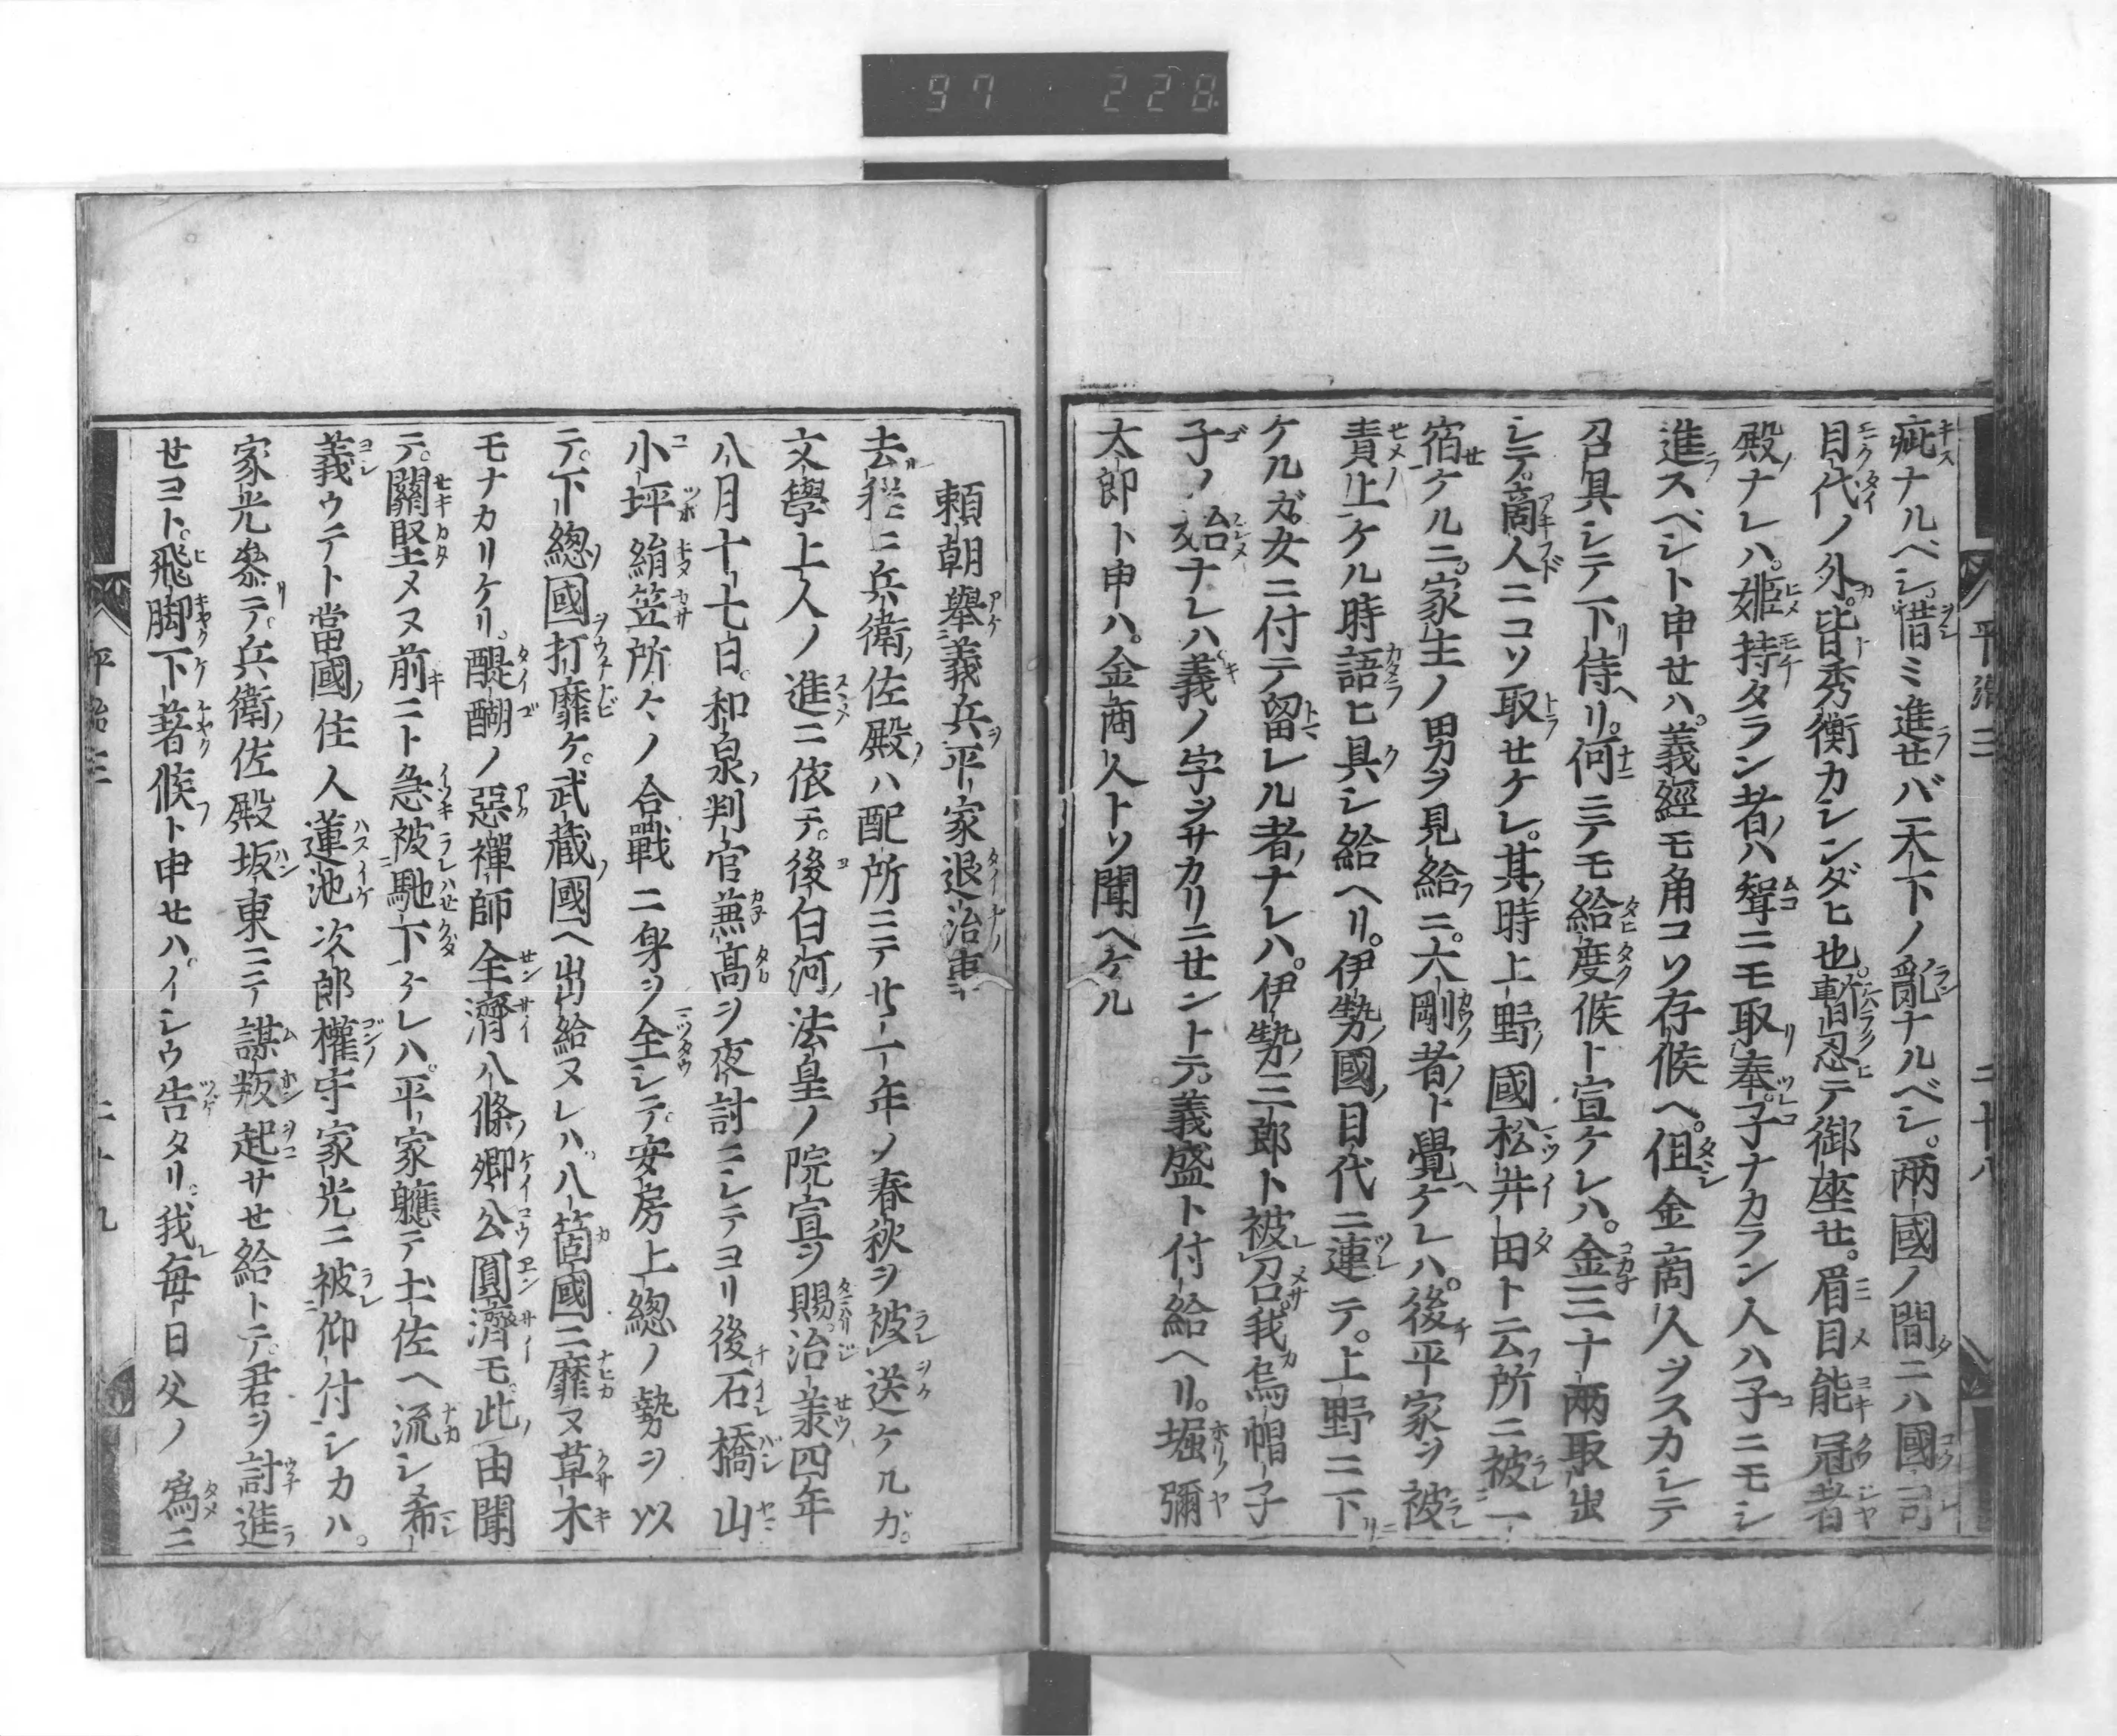 97 228
疵ナルベシ。惜ミ進せバ天下ノ亂ナルベシ。兩國ノ間ニハ國司
目代ノ外。皆秀衡カシンダヒ也。暫忍テ御座せ。眉目能冠者
殿ナレハ。姬持タラン者ハ聟ニモ取奉。子ナカラン人ハ子ニモシ
進スベシト申せハ。義經モ角コソ存候ヘ。伹金商人ヲスカシテ
召具シテ下侍リ。何ニテモ給度候ト宣ケレハ。金三十兩取出
シテ。商人ニコソ取せケレ。其時上野國松井田ト云所ニ被一
宿ケルニ。家主ノ男ヲ見給ニ。大剛者ト覺ケレハ。後平家ヲ被
責上ケル時語ヒ具シ給ヘリ。伊勢國目代ニ連テ。上野ニ下
ケルガ。女ニ付テ留レル者ナレハ。伊勢三郎ト被召。我烏帽子
子ノ始ナレハ。義ノ字ヲサカリニせントテ。義盛ト付給ヘリ。堀彌
太郎ト申ハ。金商人トソ聞ヘケル
頼朝擧義兵平家退治事
去程ニ兵衛佐殿ハ配所ニテ廿一年ノ春秋ヲ被送ケルガ。
文學上人ノ進ニ依テ。後白河法皇ノ院宣ヲ賜。治承四年
八月十七日。和泉判官兼高ヲ夜討ニシテヨリ後。石橋山
小坪絹笠所々ノ合戰ニ身ヲ全シテ。安房上總ノ勢ヲ以
テ。下總國打靡ケ。武藏國ヘ出給ヌレハ。八箇國ニ靡ヌ草木
モナカリケリ。醍醐ノ惡禪師全濟八條卿公圓濟モ。此由聞
テ。關堅メヌ前ニト急被馳下ケレハ。平家軈テ土佐ヘ流シヽ希
義ウテト當國住人蓮池次郎權守家光ニ被仰付シカハ。
家光參テ。兵衛佐殿坂東ニテ謀叛起サせ給トテ。君ヲ討進
せヨト。飛脚下著候ト申せハ。イシウ告タリ。我每日父ノ爲ニ